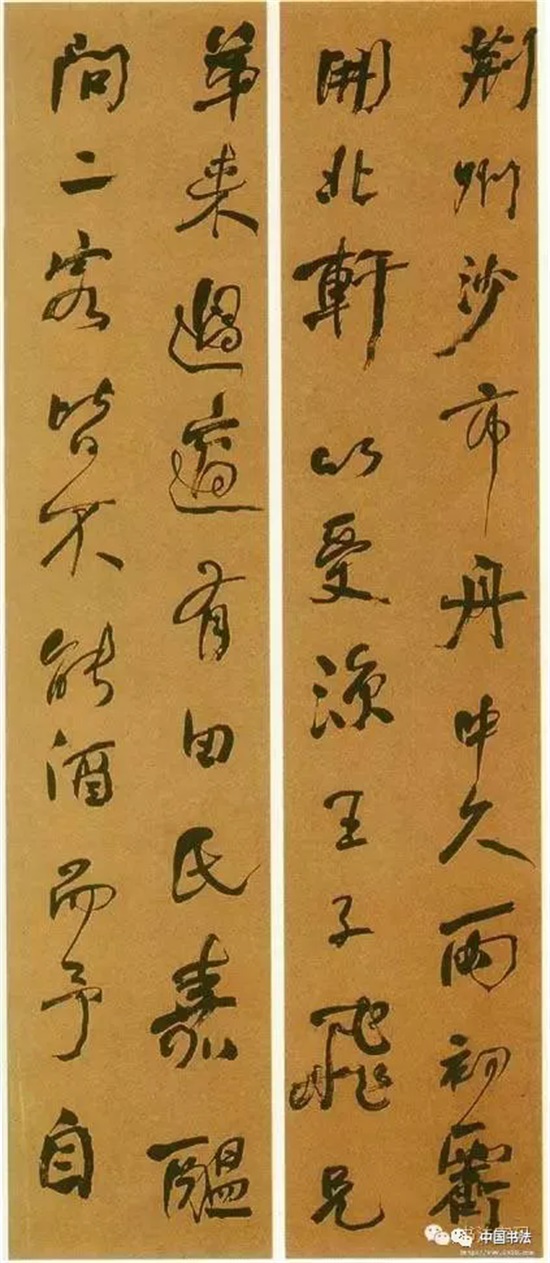 荆州沙市舟中久雨初霽
開北軒以受涼王子飛兄
弟来過適有田氏嘉醖
問二客皆不能酒而予自
中国书法